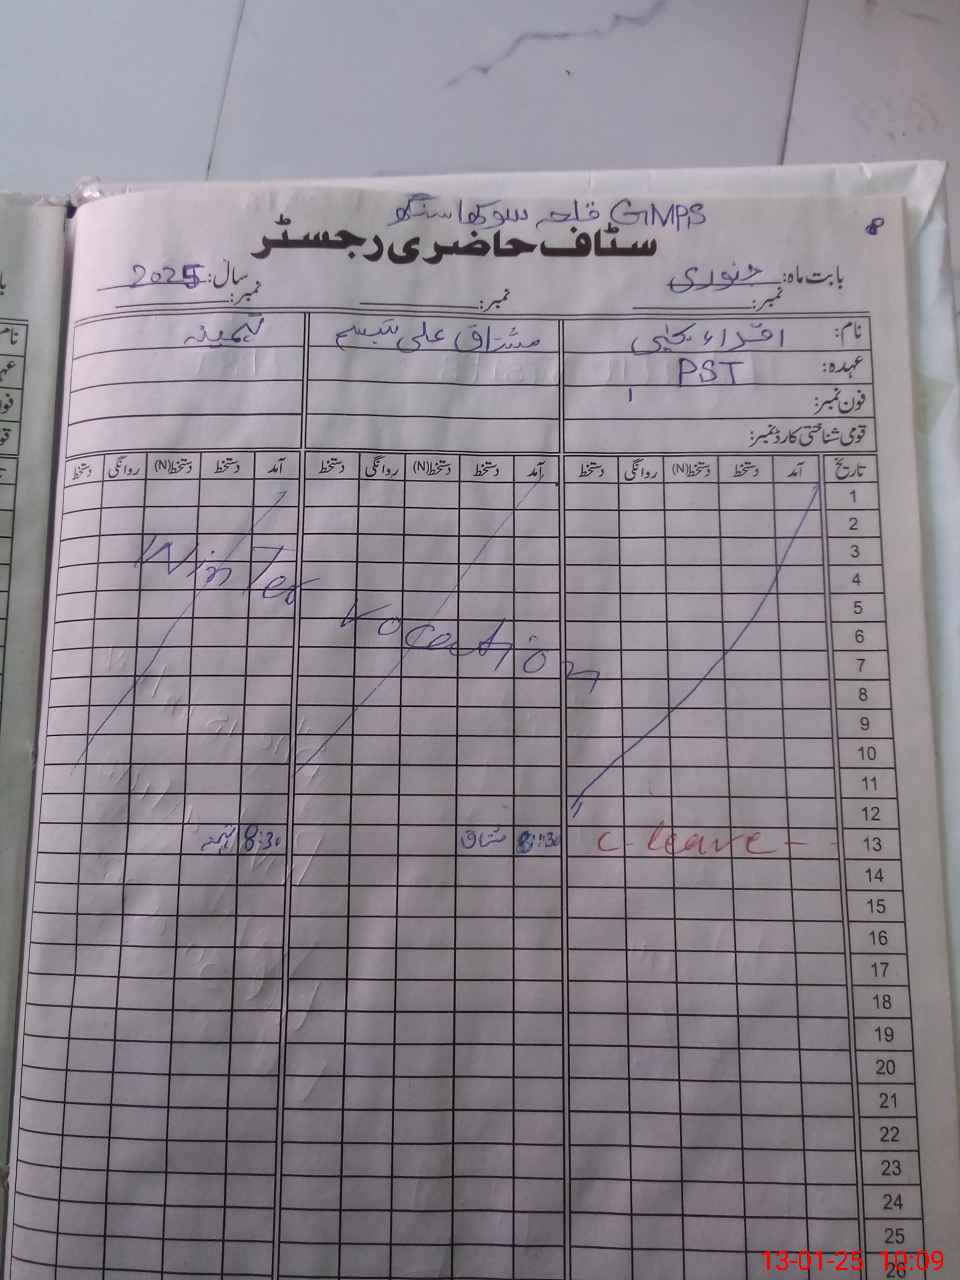 GMPS قلعہ سوکھا سنگھ
8
سٹاف حاضری رجسٹر
بابت ماہ: جنوری سال: 2025
نمبر: نمبر: نمبر:
نام: اقراء یحیٰی مشتاق علی تبسم تہمینہ
عہدہ: PST
فون نمبر:
قومی شناختی کارڈ نمبر:
تاریخ آمد دستخط دستخط(N) روانگی دستخط آمد دستخط دستخط(N) روانگی دستخط آمد دستخط دستخط(N) روانگی دستخط
1
2
3
Winter
4
5
Vocation
6
7
8
9
10
11
12
13 C- leave - - 8:30 مشتاق 8:30 تہمینہ
14
15
16
17
18
19
20
21
22
23
24
25
26
13-01-25 10:09